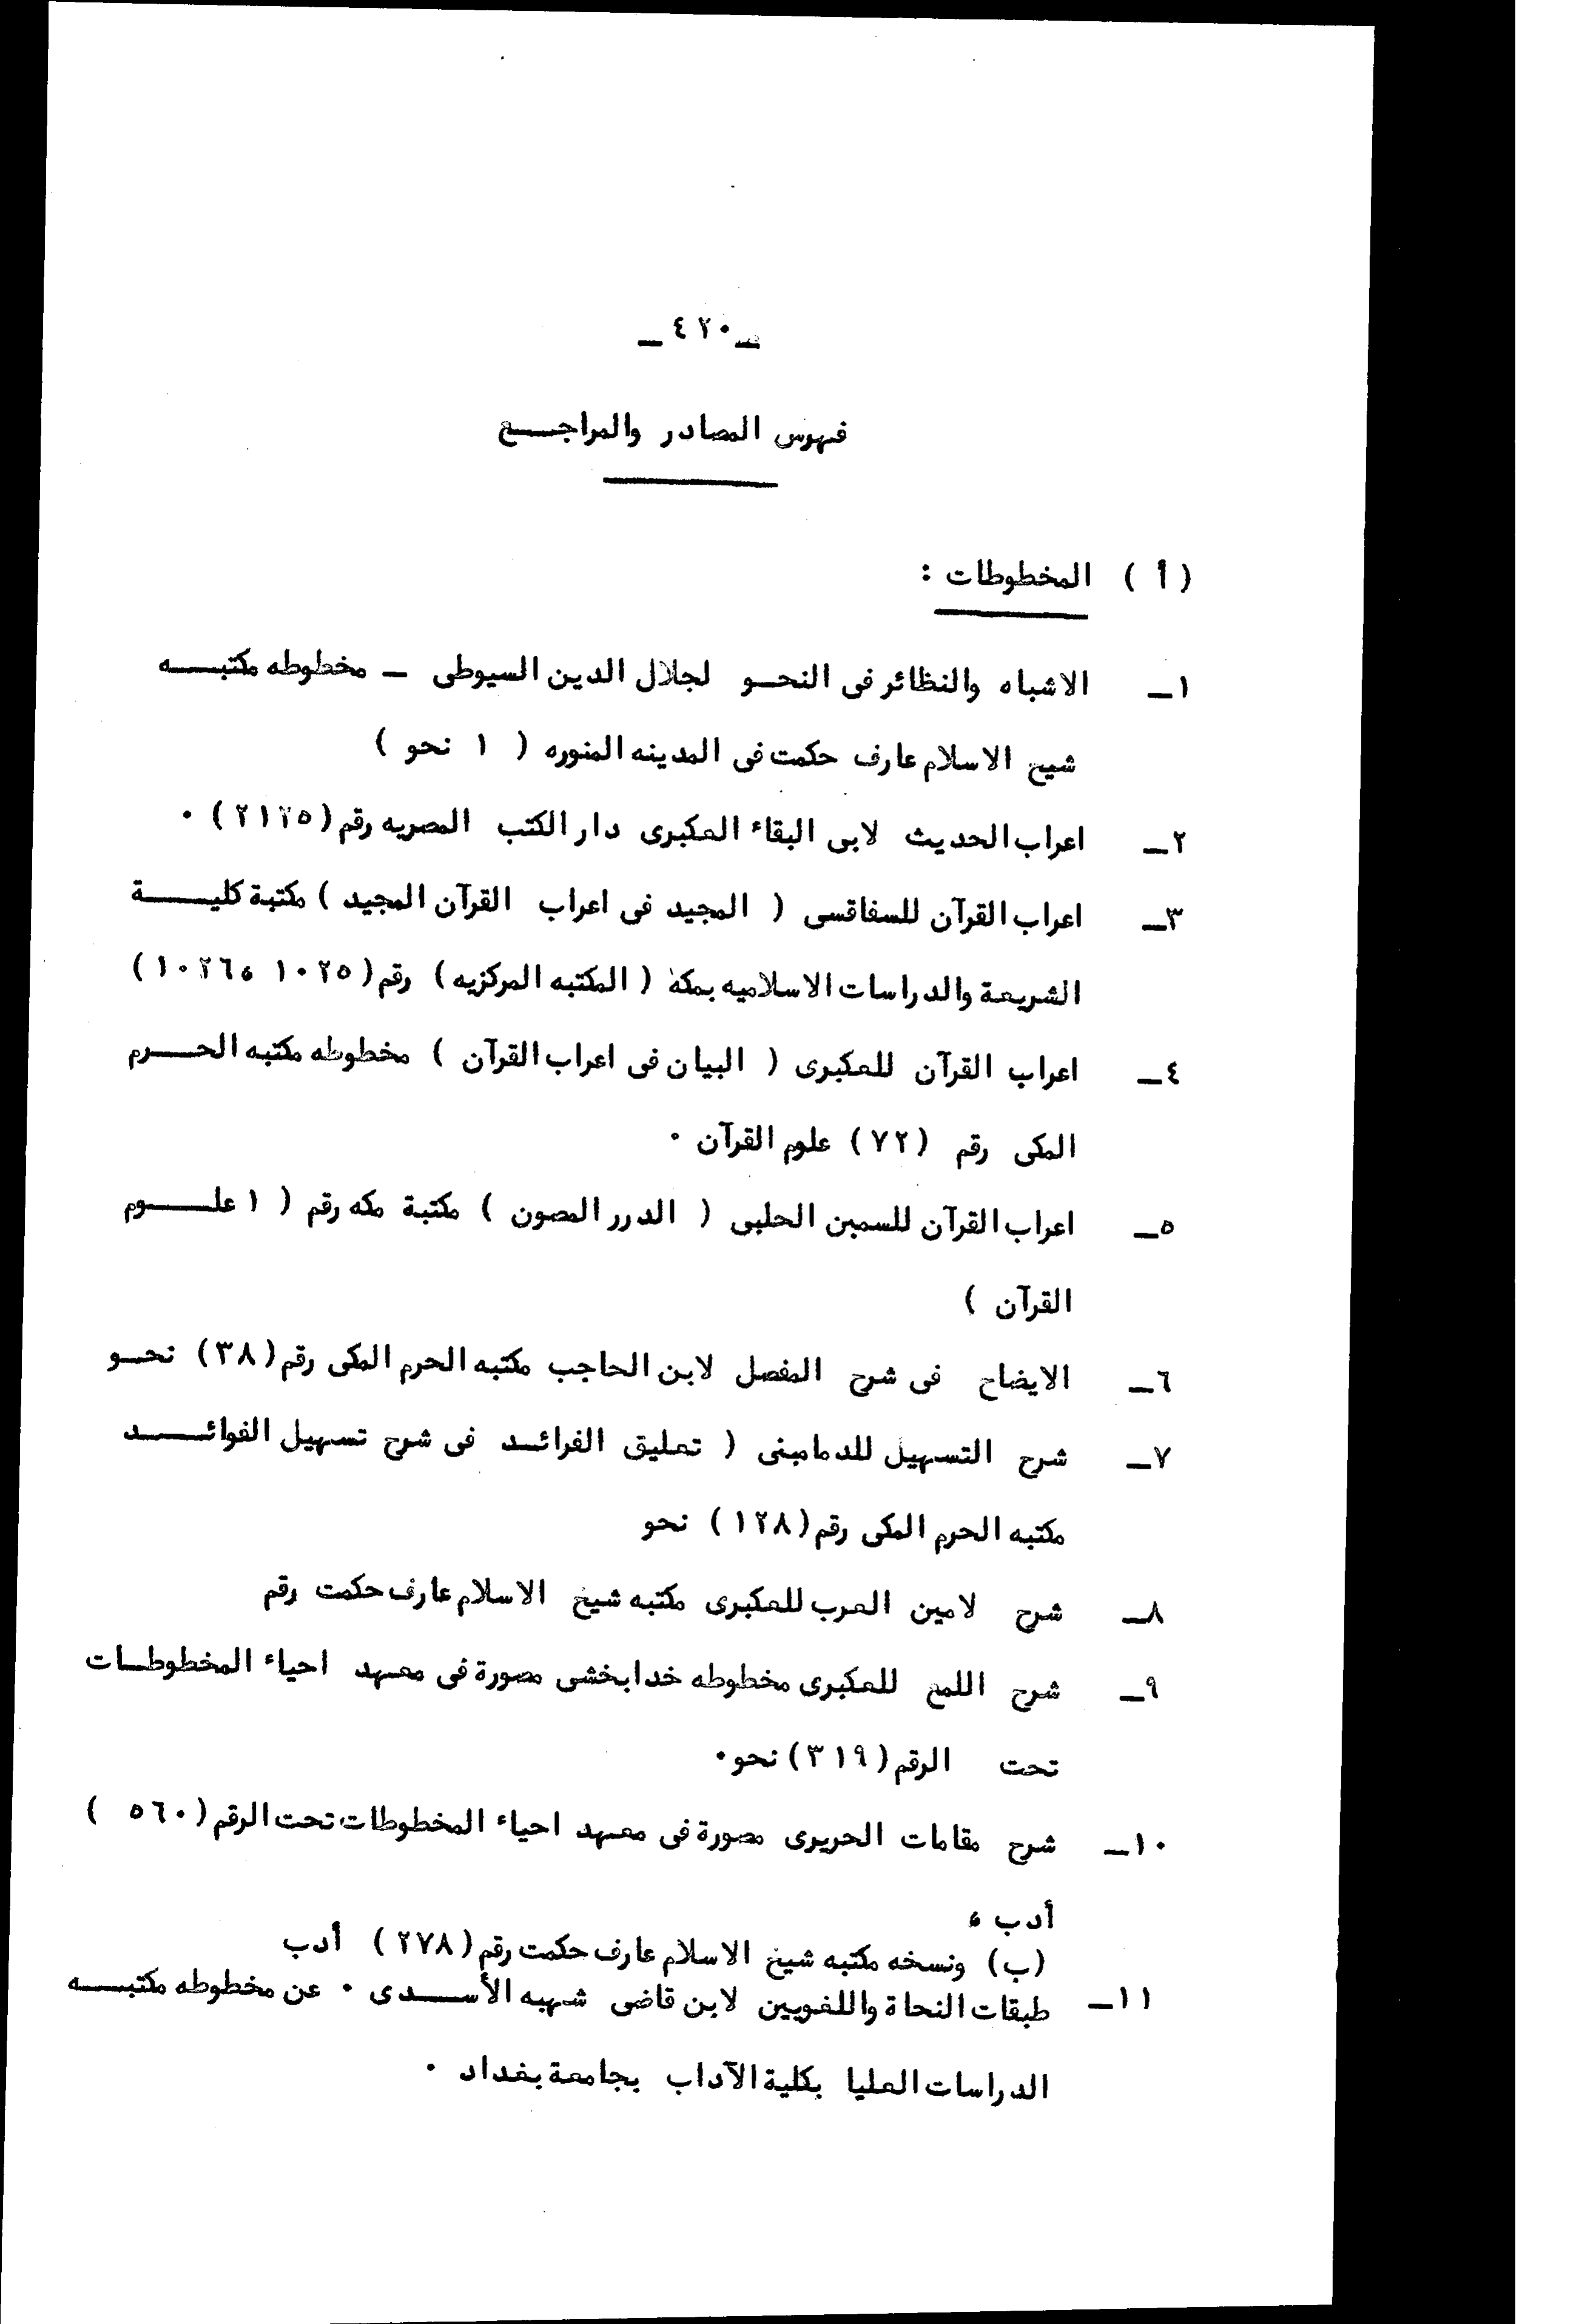 ـ ٤٢٠ ـ
فهرس المصادر والمراجـــع
( أ ) المخطوطات :
١ـ الاشباه والنظائر فى النحــو لجلال الدين السيوطى ـ مخطوطه مكتبـــه
شيخ الاسلام عارف حكمت فى المدينه المنوره ( ١ نحو )
٢ـ اعراب الحديث لابى البقاء العكبرى دار الكتب المصريه رقم (٢١٢٥) ٠
٣ـ اعراب القرآن للسفاقسى ( المجيد فى اعراب القرآن المجيد ) مكتبة كليـــة
الشريعة والدراسات الاسلاميه بمكة ( المكتبه المركزيه ) رقم (١٠٢٥ ، ١٠٢٦)
٤ـ اعراب القرآن للعكبرى ( البيان فى اعراب القرآن ) مخطوطه مكتبه الحـــرم
المكى رقم (٧٢) علوم القرآن ٠
٥ـ اعراب القرآن للسمين الحلبى ( الدرر المصون ) مكتبة مكه رقم ( ١ علـــوم
القرآن )
٦ـ الايضاح فى شرح المفصل لابن الحاجب مكتبه الحرم المكى رقم (٣٨) نحــو
٧ـ شرح التسهيل للدمامينى ( تعليق الفرائــد فى شرح تسهيل الفوائـــد
مكتبه الحرم المكى رقم (١٢٨) نحو
٨ـ شرح لامين العرب للعكبرى مكتبه شيخ الاسلام عارف حكمت رقم
٩ـ شرح اللمع للعكبرى مخطوطه خدابخشى مصورة فى معهد احياء المخطوطــات
تحت الرقم (٣١٩) نحو ٠
١٠ـ شرح مقامات الحريرى مصورة فى معهد احياء المخطوطات تحت الرقم (٥٦٠ )
أدب ،
(ب) ونسخه مكتبه شيخ الاسلام عارف حكمت رقم (٢٧٨) أدب
١١ـ طبقات النحاة واللغويين لابن قاضى شهبه الأســـدى ٠ عن مخطوطه مكتبـــه
الدراسات العليا بكلية الآداب بجامعة بغداد ٠